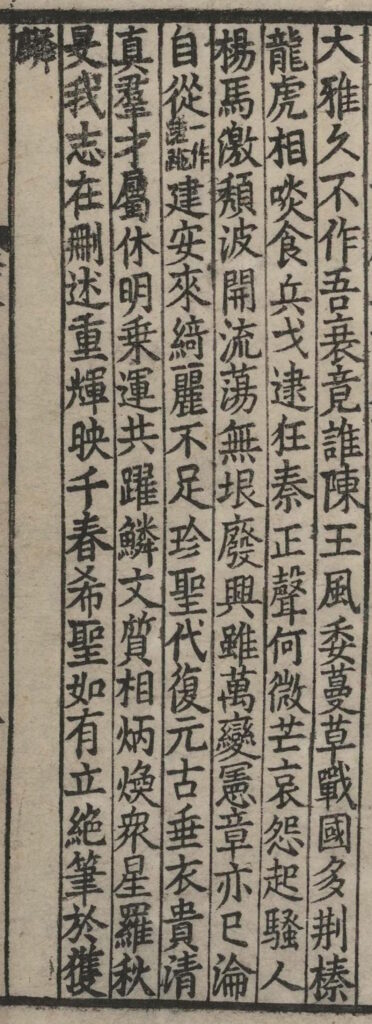 大雅久不作吾衰竟誰陳王風委蔓草戰國多荆榛
龍虎相啖食兵戈逮狂秦正聲何微芒哀怨起騷人
楊馬激頽波開流蕩無垠廢興雖萬變憲章亦已淪
自從一作蹉跎建安來綺麗不足珍聖代復元古垂衣貴清
真羣才屬休明乗運共躍鱗文質相炳煥衆星羅秋
旻我志在刪述重輝映千春希聖如有立絶筆於獲
麟